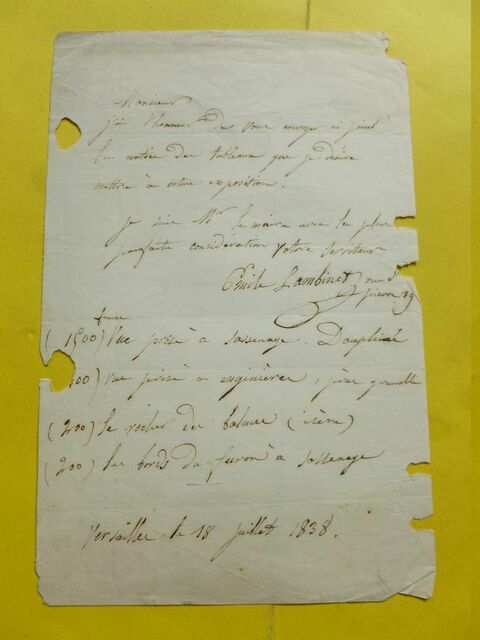 Monsieur
j'ai l'honneur de vous envoyer ci joint
la notice des tableaux que je désire
mettre à votre exposition.
je suis Mr le maire avec la plus
parfaite considération votre serviteur
Emile Lambinet rue St
pierre 19
francs
(1500) Vue prise à Sassenage. Dauphiné
00) vue prise a enginière, près grenoble
(200) le rocher des balmes (isère)
(200) les bords du furon à Sassenage
Versailles le 18 juillet 1838.